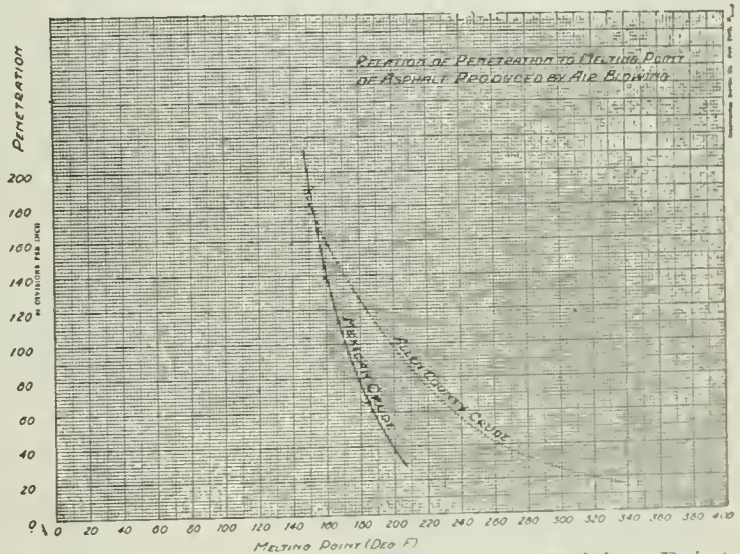 RELATION OF PENETRATION TO MELTING POINT
OF ASPHALT PRODUCED BY AIR BLOWING
PENETRATION
200
180
160
140
120
100
80
60
40
20
0
MEXICAN CRUDE
ALLEN COUNTY CRUDE
0 20 40 60 80 100 120 140 160 180 200 220 240 260 280 300 320 340 360 380 400
MELTING POINT (DEG F)